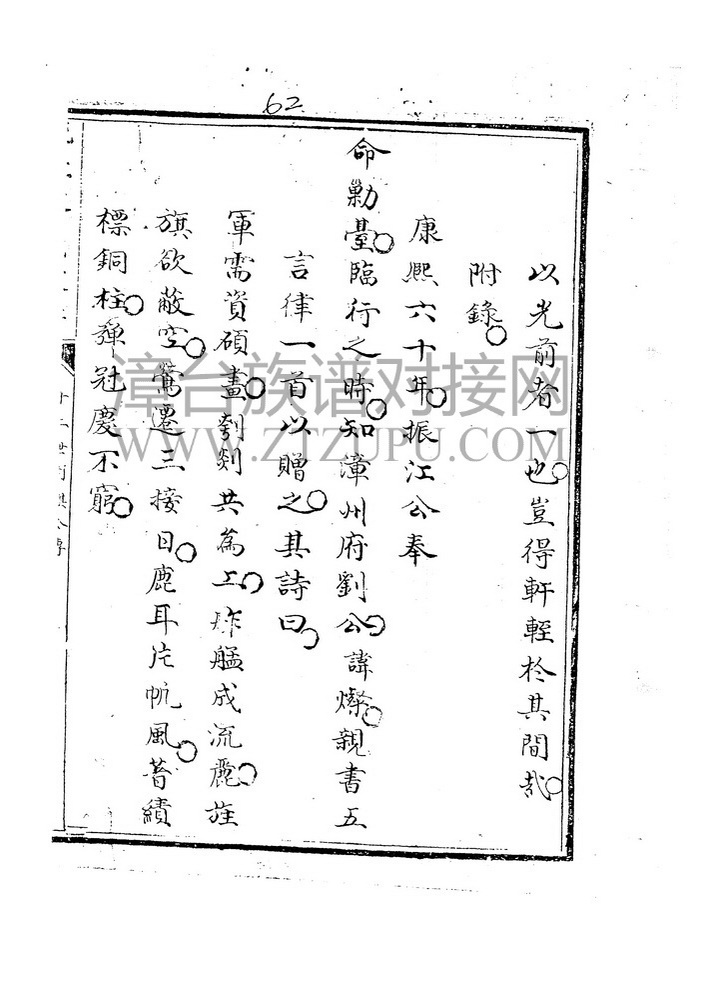 62
以光前者一也。豈得軒輊於其間哉。
附錄。
康熙六十年。振江公奉
命勦臺。臨行之時。知漳州府劉公。諱燦。親書五
言律一首以贈之。其詩曰。
軍需資碩畫。刳剡共為工。舴艋成流麗。旌
旗欲蔽空。鶯遷三接日。鹿耳片帆風。著績
標銅柱。彈冠慶不窮。
漳台族谱对接网
WWW.ZTZUPU.COM